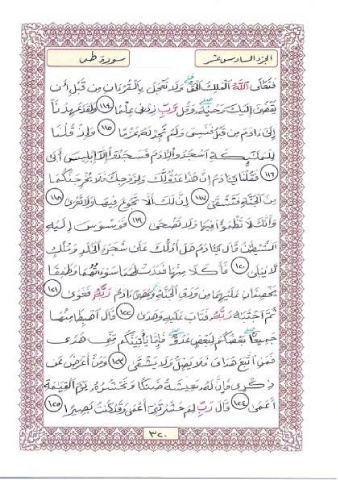 الجزء السادس عشر سورة طه
فتعالى الله الملك الحق ولا تعجل بالقرءان من قبل أن
يقضى إليك وحيه وقل رب زدني علما ١١٤ ولقد عهدنا
إلى ءادم من قبل فنسي ولم نجد له عزما ١١٥ وإذ قلنا
للملئكة اسجدوا لأدم فسجدوا إلا إبليس أبى
١١٦ فقلنا يادم إن هذا عدو لك ولزوجك فلا يخرجنكما
من الجنة فتشقى ١١٧ إن لك ألا تجوع فيها ولا تعرى ١١٨
وأنك لا تظمؤا فيها ولا تضحى ١١٩ فوسوس إليه
الشيطن قال يادم هل أدلك على شجرة الخلد وملك
لا يبلى ١٢٠ فأكلا منها فبدت لهما سوءتهما وطفقا
يخصفان عليهما من ورق الجنة وعصى ءادم ربه فغوى ١٢١
ثم اجتبه ربه فتاب عليه وهدى ١٢٢ قال اهبطا منها
جميعا بعضكم لبعض عدو فإما يأتينكم مني هدى
فمن اتبع هداي فلا يضل ولا يشقى ١٢٣ ومن أعرض عن
ذكري فإن له معيشة ضنكا ونحشره يوم القيمة
أعمى ١٢٤ قال رب لم حشرتني أعمى وقد كنت بصيرا ١٢٥
٣٢٠